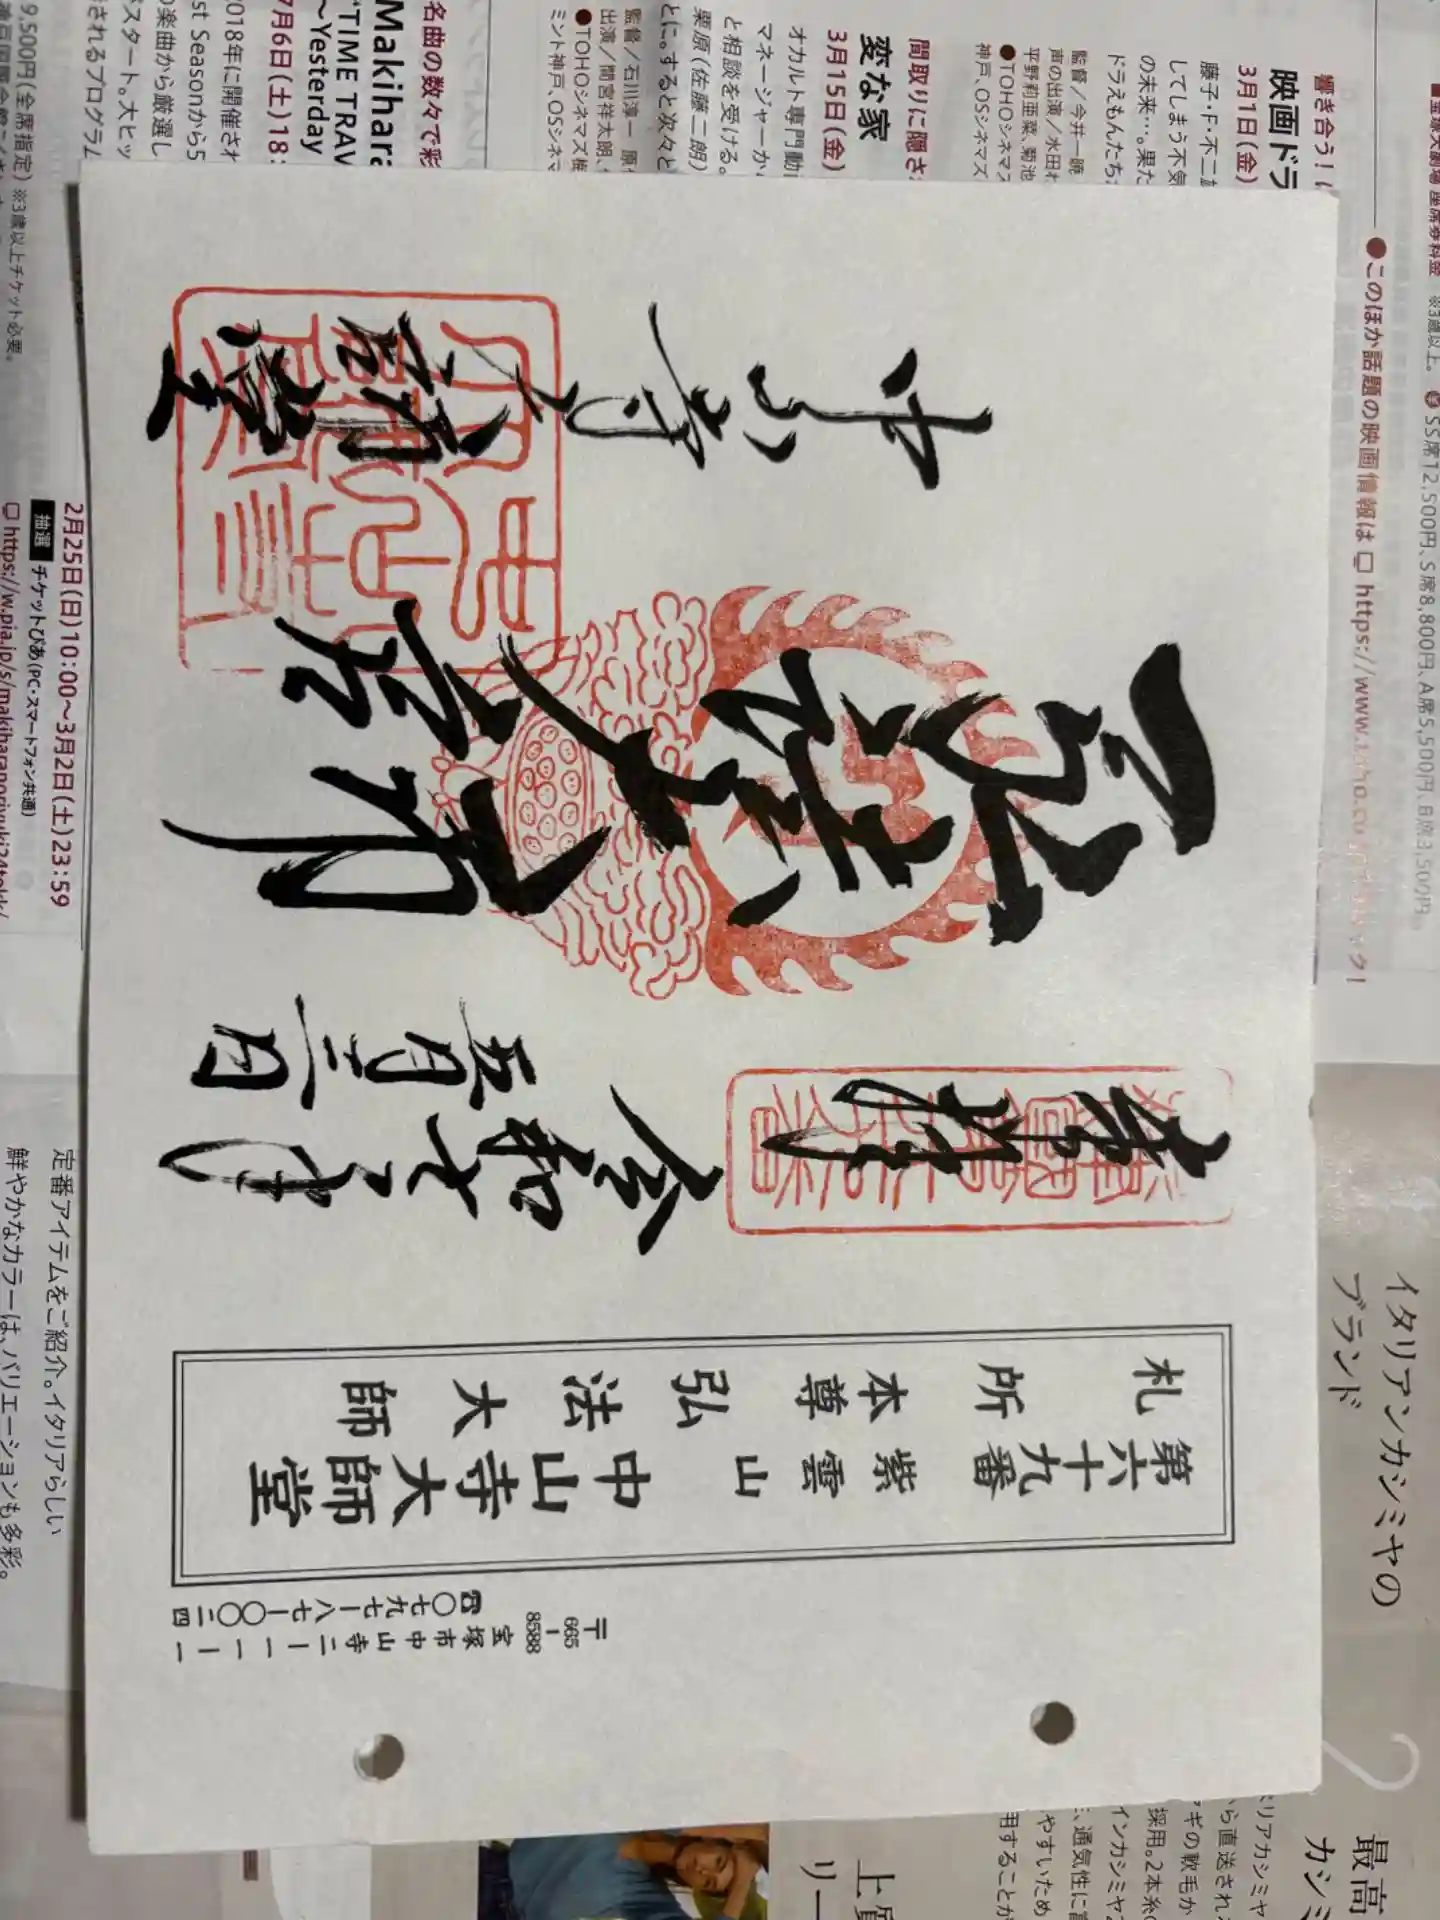 〒665-8588
宝塚市中山寺二ー一一ー一
☎〇七九七ー八七ー〇〇二四
第六十九番 紫雲山 中山寺大師堂
札所 本尊 弘法大師
奉拝
令和七年
五月三日
弘法大師
中山寺
大師堂
響き合う!
映画ドラ
3月1日(金)
藤子・F・不二
してしまう不気
の未来…。果た
ドラえもんたち
監督/今井一暁
声の出演/水田わ
平野莉亜菜、菊池
●TOHOシネマズ
神戸、OSシネマズ
間取りに隠さ
変な家
3月15日(金)
オカルト専門動
マネージャーか
と相談を受ける。
栗原(佐藤二朗)
とに。すると次々と
監督/石川淳一 原
出演/間宮祥太朗、
●TOHOシネマズ
ミント神戸、OSシネマ
●このほか話題の映画情報は
名曲の数々で彩
Makihara
"TIME TRAV
~Yesterday
7月6日(土)18:
2018年に開催され
st Seasonから5
の楽曲から厳選し
スタート。大ヒッ
されるプログラム
9,500円(全席指定) ※3歳以上チケット必要。
2月25日(日)10:00~3月2日(土)23:59
抽選 チケットぴあ(PC・スマートフォン共通)
https://w.pia.jp/s/makiharanoriyuki24
SS席12,500円、S席8,800円、A席5,500円、B席3,500円。
イタリアンカシミヤの
ブランド
定番アイテムをご紹介。イタリアらしい
鮮やかなカラーは、バリエーションも多彩。
最高
カシミ
リアカシミヤ
ら直送され
ギの軟毛か
採用。2本糸
インカシミヤ
、通気性に
やすいため
用することが
上質
リー